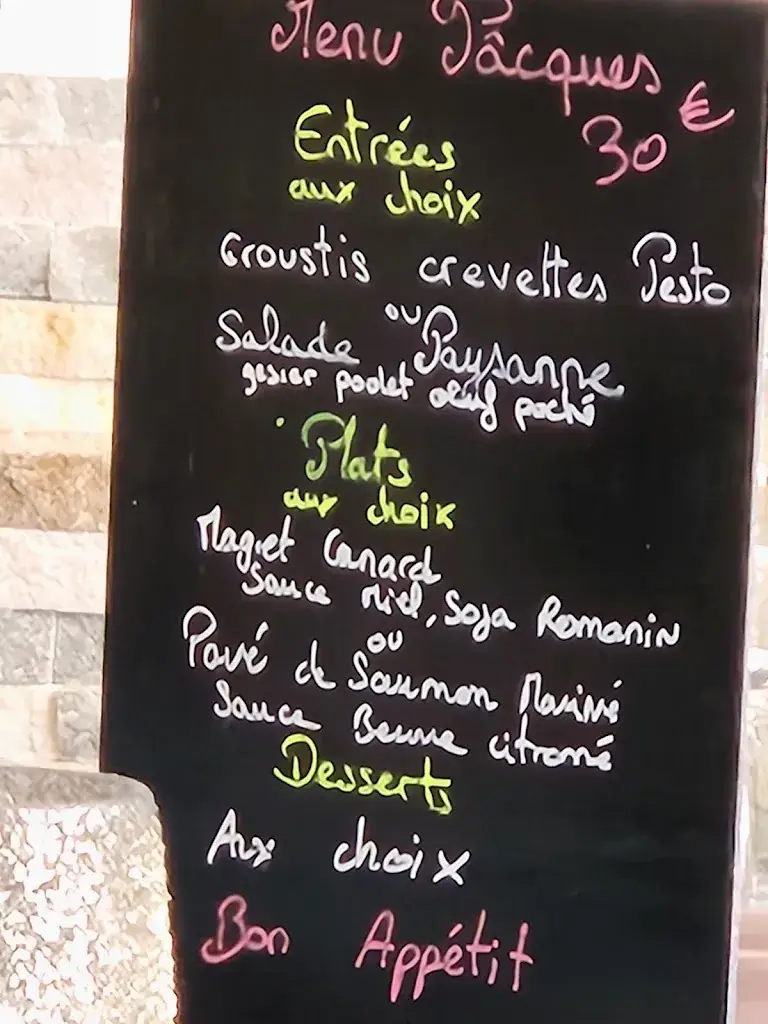 Menu Pâcques
€
30
Entrées
aux choix
Croustis crevettes Pesto
ou
Salade Paysanne
gesier poulet œuf poché
Plats
aux choix
Magret Canard
Sauce Miel, Soja Romarin
ou
Pavé de Saumon Mariné
Sauce Beurre citronné
Desserts
Aux choix
Bon Appétit